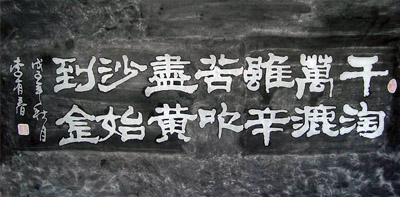 千淘
萬漉
雖辛
苦吹
盡黃
沙始
到金
戊子年秋月